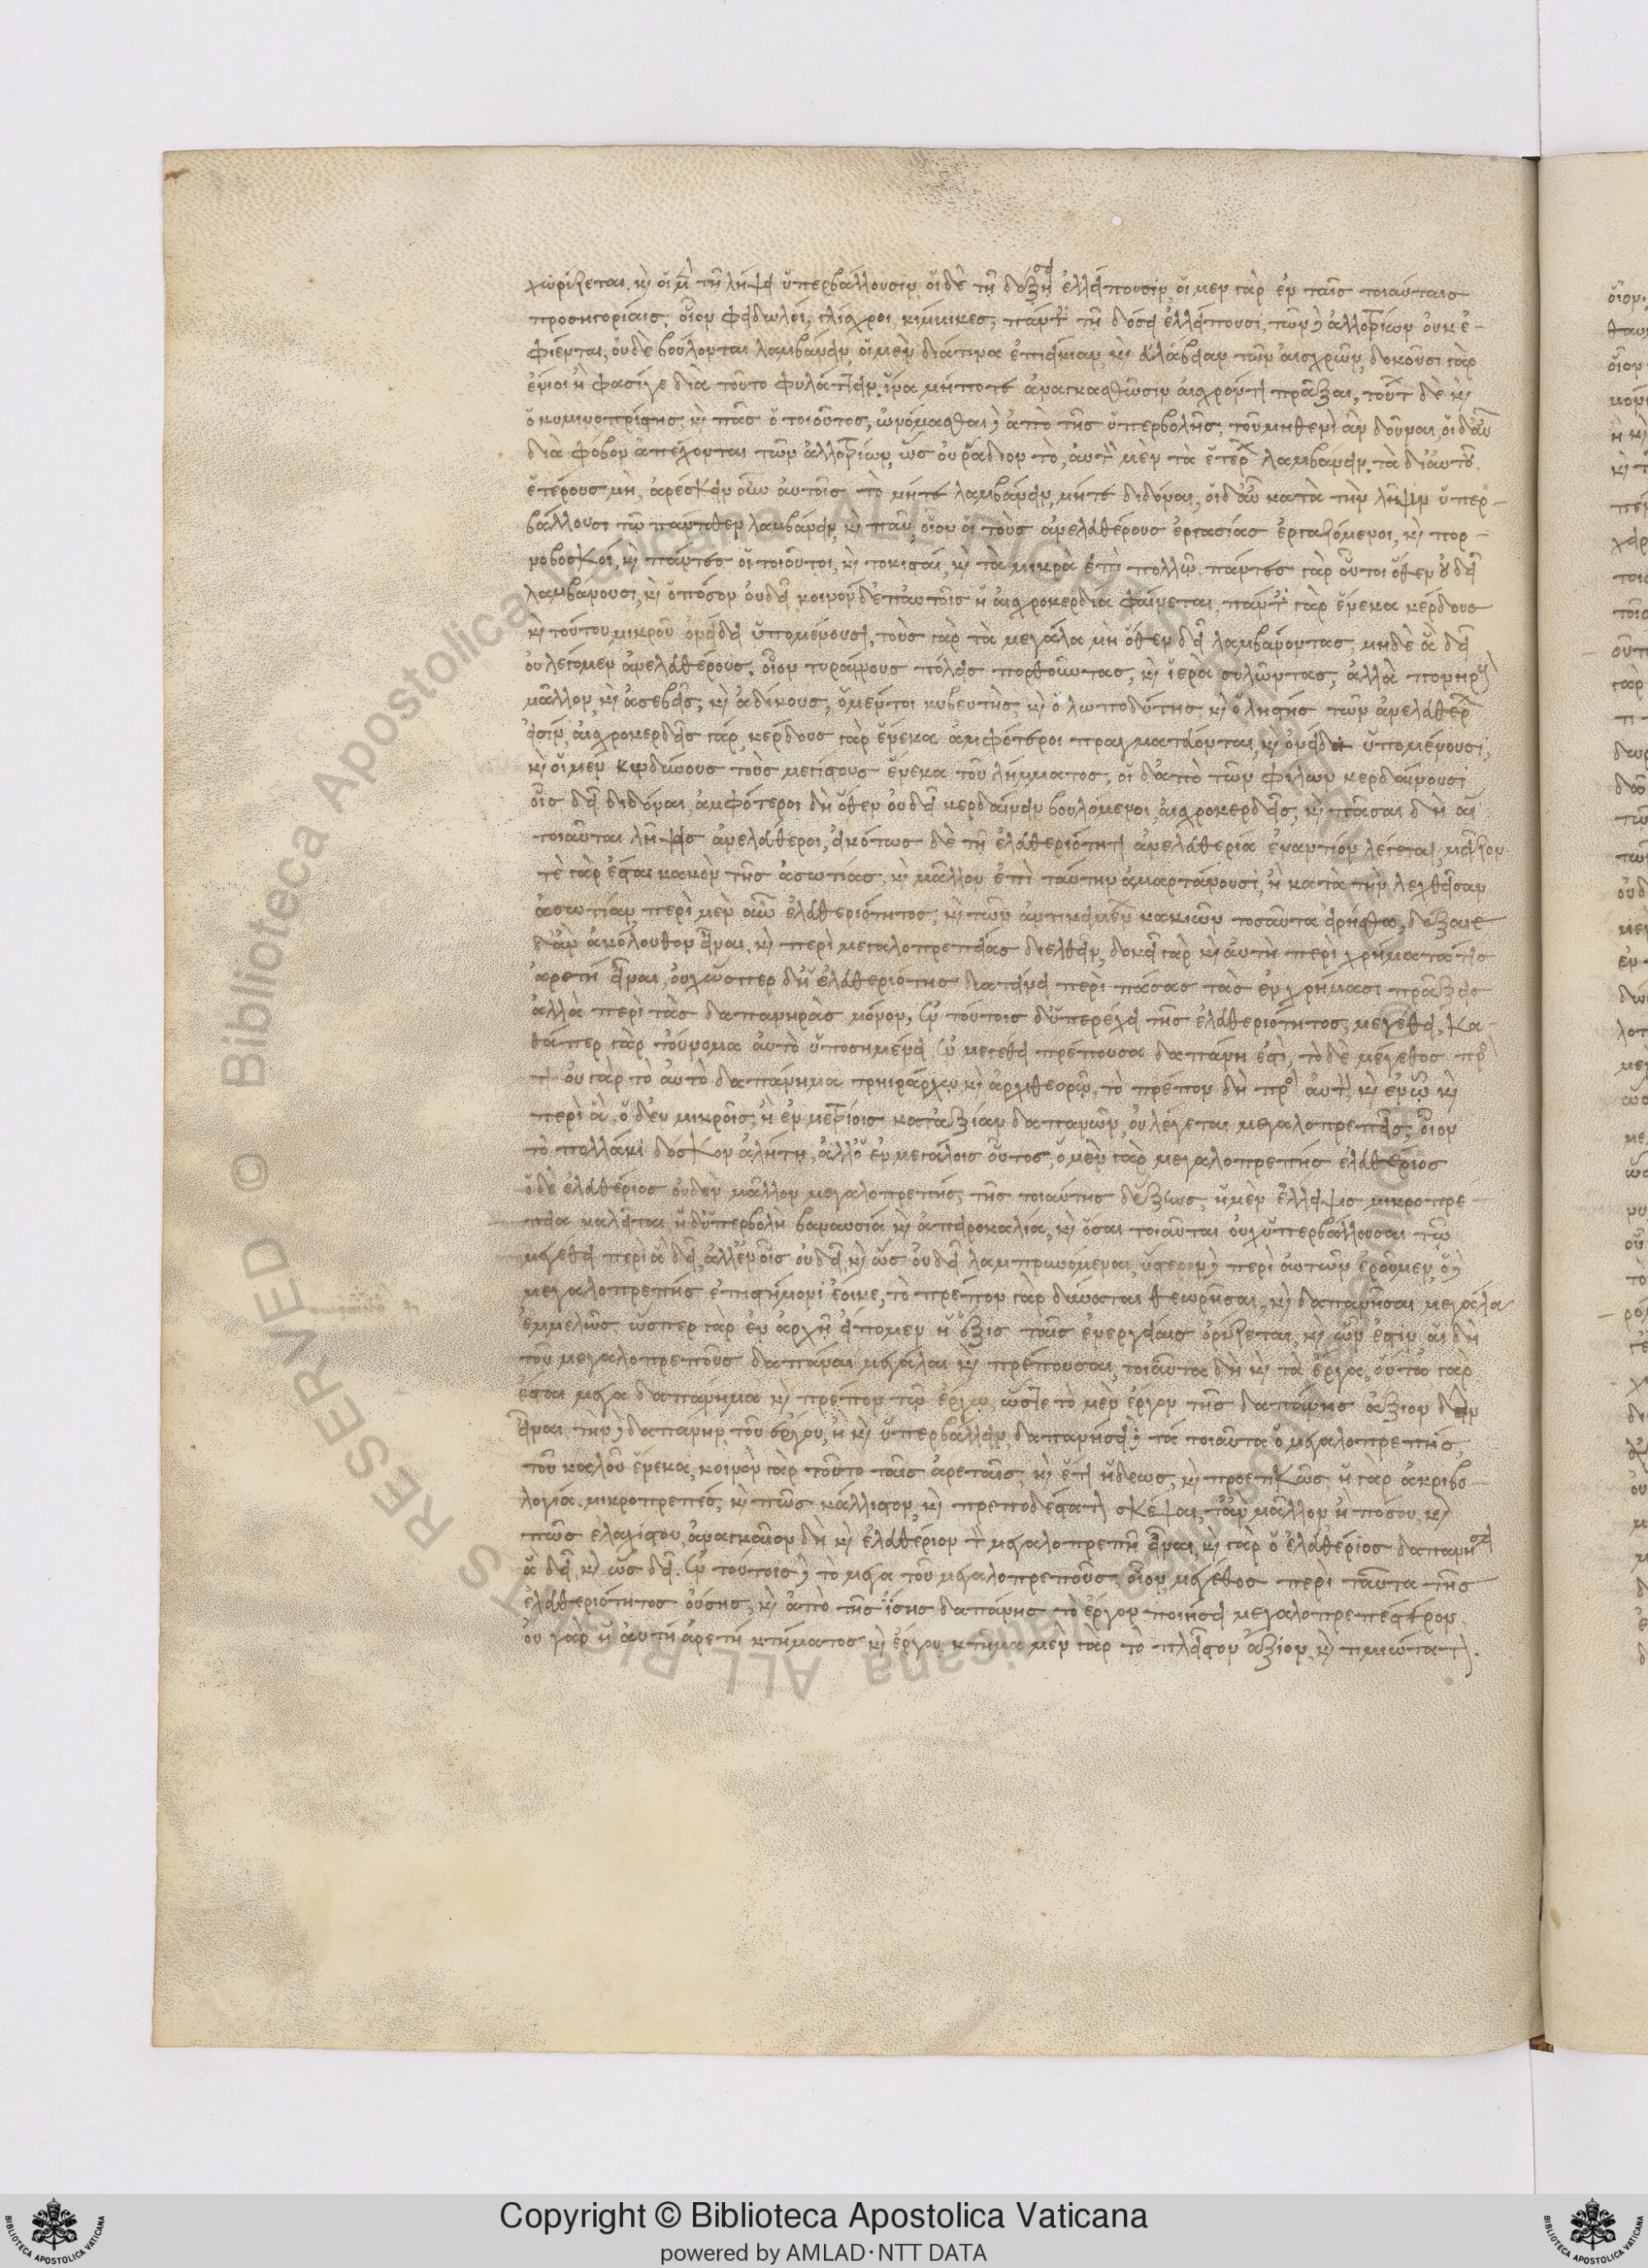 χωρίζεται, καὶ οἱ μὲν τῇ λήψει ὑπερβάλλουσιν, οἱ δὲ τῇ δόξῃ ἐλλείπουσιν, οἱ μὲν γὰρ ἐν ταῖς τοιαύταις
προσηγορίαις, οἷον φειδωλοί, γλίσχροι, κίμινκες, πάντες τῇ δόσει ἐλλείπουσι, τῶν δ' ἀλλοτρίων οὐκ ἐ-
φίενται, οὐδὲ βούλονται λαμβάνειν, οἱ μὲν διά τινα ἐπιείκιαν, καὶ εὐλάβειαν τῶν αἰσχρῶν, δοκοῦσι γὰρ
ἔνιοι ἢ φασί γε διὰ τοῦτο φυλάττειν, ἵνα μήποτε ἀναγκασθῶσιν αἰσχρόν τι πρᾶξαι, τούτων δὲ καὶ
ὁ κυμινοπρίστης, καὶ πᾶς ὁ τοιοῦτος, ὠνόμασται δ' ἀπὸ τῆς ὑπερβολῆς, τοῦ μηθενὶ ἂν δοῦναι, οἱ δ' αὖ
διὰ φόβον ἀπέχονται τῶν ἀλλοτρίων, ὡς οὐ ῥᾴδιον τὸ, αὐτὸν μὲν τὰ ἑτέρων λαμβάνειν, τὰ δι' αὐτοῦ
ἑτέρους μή, ἀρέσκειν οὖν αὐτοῖς τὸ μήτε λαμβάνειν, μήτε διδόναι, οἱ δ' αὖ κατὰ τὴν λῆψιν ὑπερ-
βάλλουσι τῷ πάντοθεν λαμβάνειν, καὶ πᾶν, οἷον οἱ τοὺς ἀνελευθέρους ἐργασίας ἐργαζόμενοι, καὶ πορ-
νοβοσκοί, καὶ πάντες οἱ τοιοῦτοι, καὶ τοκισταί, καὶ τὰ μικρὰ ἐπὶ πολλῷ, πάντες γὰρ οὗτοι ὅθεν οὐ δεῖ
λαμβάνουσι, καὶ ὁπόσον οὐ δεῖ, κοινὸν δ' ἐπ' αὐτοῖς ἡ αἰσχροκερδία φαίνεται, πάντες γὰρ ἕνεκα κέρδους
καὶ τούτου μικροῦ ὀνείδει ὑπομένουσι, τοὺς γὰρ τὰ μεγάλα μὴ ὅθεν δεῖ λαμβάνοντας, μηδὲ ἃ δεῖ
οὐ λέγομεν ἀνελευθέρους, οἷον τυράννους πόλεις πορθοῦντας, καὶ ἱερὰ συλῶντας, ἀλλὰ πονηροὺς
μᾶλλον, καὶ ἀσεβεῖς, καὶ ἀδίκους, ὁ μέντοι κυβευτής, καὶ ὁ λωποδύτης, καὶ ὁ λῃστὴς τῶν ἀνελευθέρων
εἰσίν, αἰσχροκερδεῖς γάρ, κέρδους γὰρ ἕνεκα ἀμφότεροι πραγματεύονται, καὶ ὀνείδει ὑπομένουσι,
καὶ οἱ μὲν κινδύνους τοὺς μεγίστους ἕνεκα τοῦ λήμματος, οἱ δ' ἀπὸ τῶν φίλων κερδαίνουσι
οἷς δεῖ διδόναι, ἀμφότεροι δὴ ὅθεν οὐ δεῖ κερδαίνειν βουλόμενοι, αἰσχροκερδεῖς, καὶ πᾶσαι δὴ αἱ
τοιαῦται λήψεις ἀνελεύθεροι, εἰκότως δὲ τῇ ἐλευθεριότητι ἀνελευθερία ἐναντίον λέγεται, μεῖζόν
τε γάρ ἐστι κακὸν τῆς ἀσωτίας, καὶ μᾶλλον ἐπὶ ταύτην ἁμαρτάνουσι, ἢ κατὰ τὴν λεχθεῖσαν
ἀσωτίαν, περὶ μὲν οὖν ἐλευθεριότητος, καὶ τῶν ἀντικειμένων κακιῶν τοσαῦτα εἰρήσθω, δόξαιε
δ' ἂν ἀκόλουθον εἶναι, καὶ περὶ μεγαλοπρεπείας διελθεῖν, δοκεῖ γὰρ καὶ αὐτὴ περὶ χρήματά τις
ἀρετὴ εἶναι, οὐχ ὥσπερ δ' ἡ ἐλευθεριότης διατείνει περὶ πάσας τὰς ἐν χρήμασι πράξεις
ἀλλὰ περὶ τὰς δαπανηρὰς μόνον, ἐν τούτοις δ' ὑπερέχει τῆς ἐλευθεριότητος, μεγέθει, κα-
θάπερ γὰρ τοὔνομα αὐτὸ ὑποσημαίνει ἐν μεγέθει πρέπουσα δαπάνη ἐστί, τὸ δὲ μέγεθος πρός
τι οὐ γὰρ τὸ αὐτὸ δαπάνημα τριηράρχῳ καὶ ἀρχιθεωρῷ, τὸ πρέπον δὴ πρὸς αὐτὸν, καὶ ἐν ᾧ καὶ
περὶ ἃ, ὁ δ' ἐν μικροῖς, ἢ ἐν μετρίοις κατ' ἀξίαν δαπανῶν, οὐ λέγεται μεγαλοπρεπής, οἷον
τὸ πολλάκι δόσκον ἀλήτῃ, ἀλλ' ὁ ἐν μεγάλοις οὗτος, ὁ μὲν γὰρ μεγαλοπρεπὴς ἐλευθέριος
ὁ δὲ ἐλευθέριος οὐδὲν μᾶλλον μεγαλοπρεπής, τῆς τοιαύτης δ' ἕξεως, ἡ μὲν ἔλλειψις μικροπρέ-
πεια καλεῖται, ἡ δ' ὑπερβολὴ βαναυσία καὶ ἀπειροκαλία, καὶ ὅσαι τοιαῦται οὐχ ὑπερβάλλουσαι τῷ
μεγέθει περὶ ἃ δεῖ, ἀλλ' ἐν οἷς οὐ δεῖ, καὶ ὡς οὐ δεῖ λαμπρυνόμεναι, ὕστερον δ' περὶ αὐτῶν ἐροῦμεν, ὁ δ'
μεγαλοπρεπὴς ἐπιστήμονι ἔοικε, τὸ πρέπον γὰρ δύναται θεωρῆσαι, καὶ δαπανῆσαι μεγάλα
ἐμμελῶς, ὥσπερ γὰρ ἐν ἀρχῇ εἴπομεν ἡ ἕξις ταῖς ἐνεργείαις ὁρίζεται, καὶ ὧν ἐστίν, αἱ δὴ
τοῦ μεγαλοπρεποῦς δαπάναι μεγάλαι καὶ πρέπουσαι, τοιαῦτα δὴ καὶ τὰ ἔργα, οὕτω γὰρ
ἔσται μέγα δαπάνημα καὶ πρέπον τῷ ἔργῳ, ὥστε τὸ μὲν ἔργον τῆς δαπάνης ἄξιον δεῖ
εἶναι, τὴν δ' δαπάνην τοῦ ἔργου, ἢ καὶ ὑπερβάλλειν, δαπανήσει δ' τὰ τοιαῦτα ὁ μεγαλοπρεπής,
τοῦ καλοῦ ἕνεκα, κοινὸν γὰρ τοῦτο ταῖς ἀρεταῖς, καὶ ἔτι ἡδέως, καὶ προετικῶς, ἡ γὰρ ἀκριβο-
λογία, μικροπρεπές, καὶ πῶς κάλλιστον, καὶ πρεπωδέστατον σκέψαιτ' ἂν μᾶλλον ἢ πόσου, καὶ
πῶς ἐλαχίστου, ἀναγκαῖον δὴ καὶ ἐλευθέριον τὸν μεγαλοπρεπῆ εἶναι, καὶ γὰρ ὁ ἐλευθέριος δαπανήσει
ἃ δεῖ, καὶ ὡς δεῖ. ἐν τούτοις δ' τὸ μέγα τοῦ μεγαλοπρεποῦς, οἷον μέγεθος περὶ ταῦτα τῆς
ἐλευθεριότητος οὔσης, καὶ ἀπὸ τῆς ἴσης δαπάνης τὸ ἔργον ποιήσει μεγαλοπρεπέστερον,
οὐ γὰρ ἡ αὐτὴ ἀρετὴ κτήματος καὶ ἔργου, κτῆμα μὲν γὰρ τὸ πλεῖστον ἄξιον, καὶ τιμιώτατον.
Copyright © Biblioteca Apostolica Vaticana
powered by AMLAD·NTT DATA